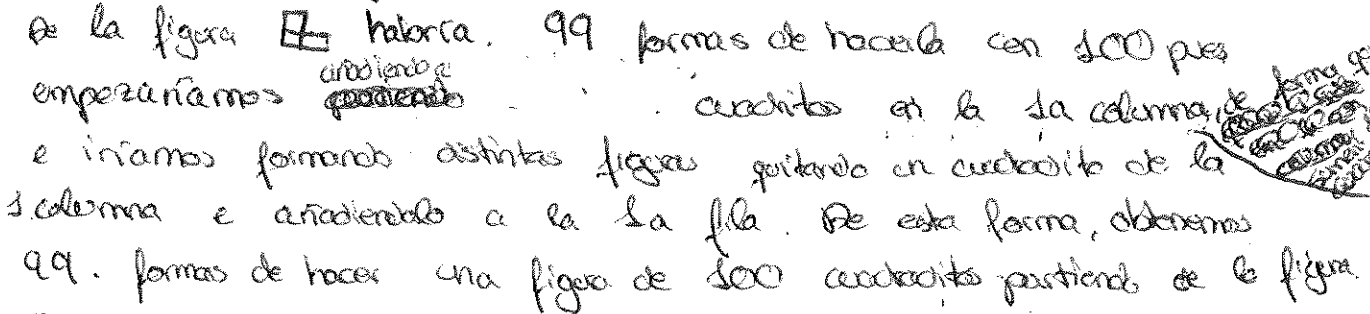 De la figura habría. 99 formas de hacerla con 100 pues
empezaríamos añadiendo cuadritos en la 1a columna, de forma
e iríamos formando distintas figuras quitando un cuadradito de la
1 columna e añadiendolo a la 1a fila. De esta forma, obtenemos
99. formas de hacer una figura de 100 cuadraditos partiendo de la figura